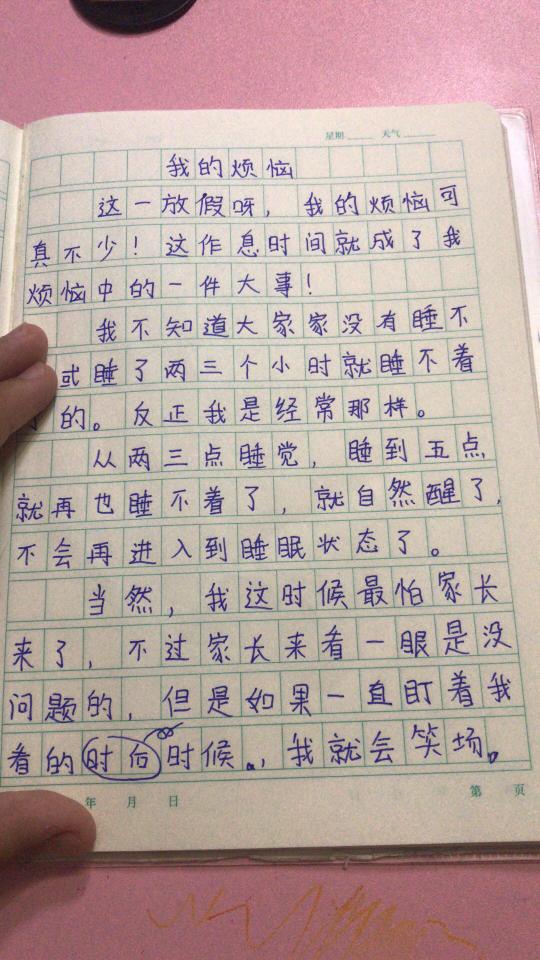 星期 天气
我的烦恼
这一放假呀，我的烦恼可
真不少！这作息时间就成了我
烦恼中的一件大事！
我不知道大家家没有睡不
或睡了两三个小时就睡不着
的。反正我是经常那样。
从两三点睡觉，睡到五点
就再也睡不着了，就自然醒了，
不会再进入到睡眠状态了。
当然，我这时候最怕家长
来了，不过家长来看一眼是没
问题的，但是如果一直盯着我
看的时后时候，我就会笑场。
年 月 日 第 页